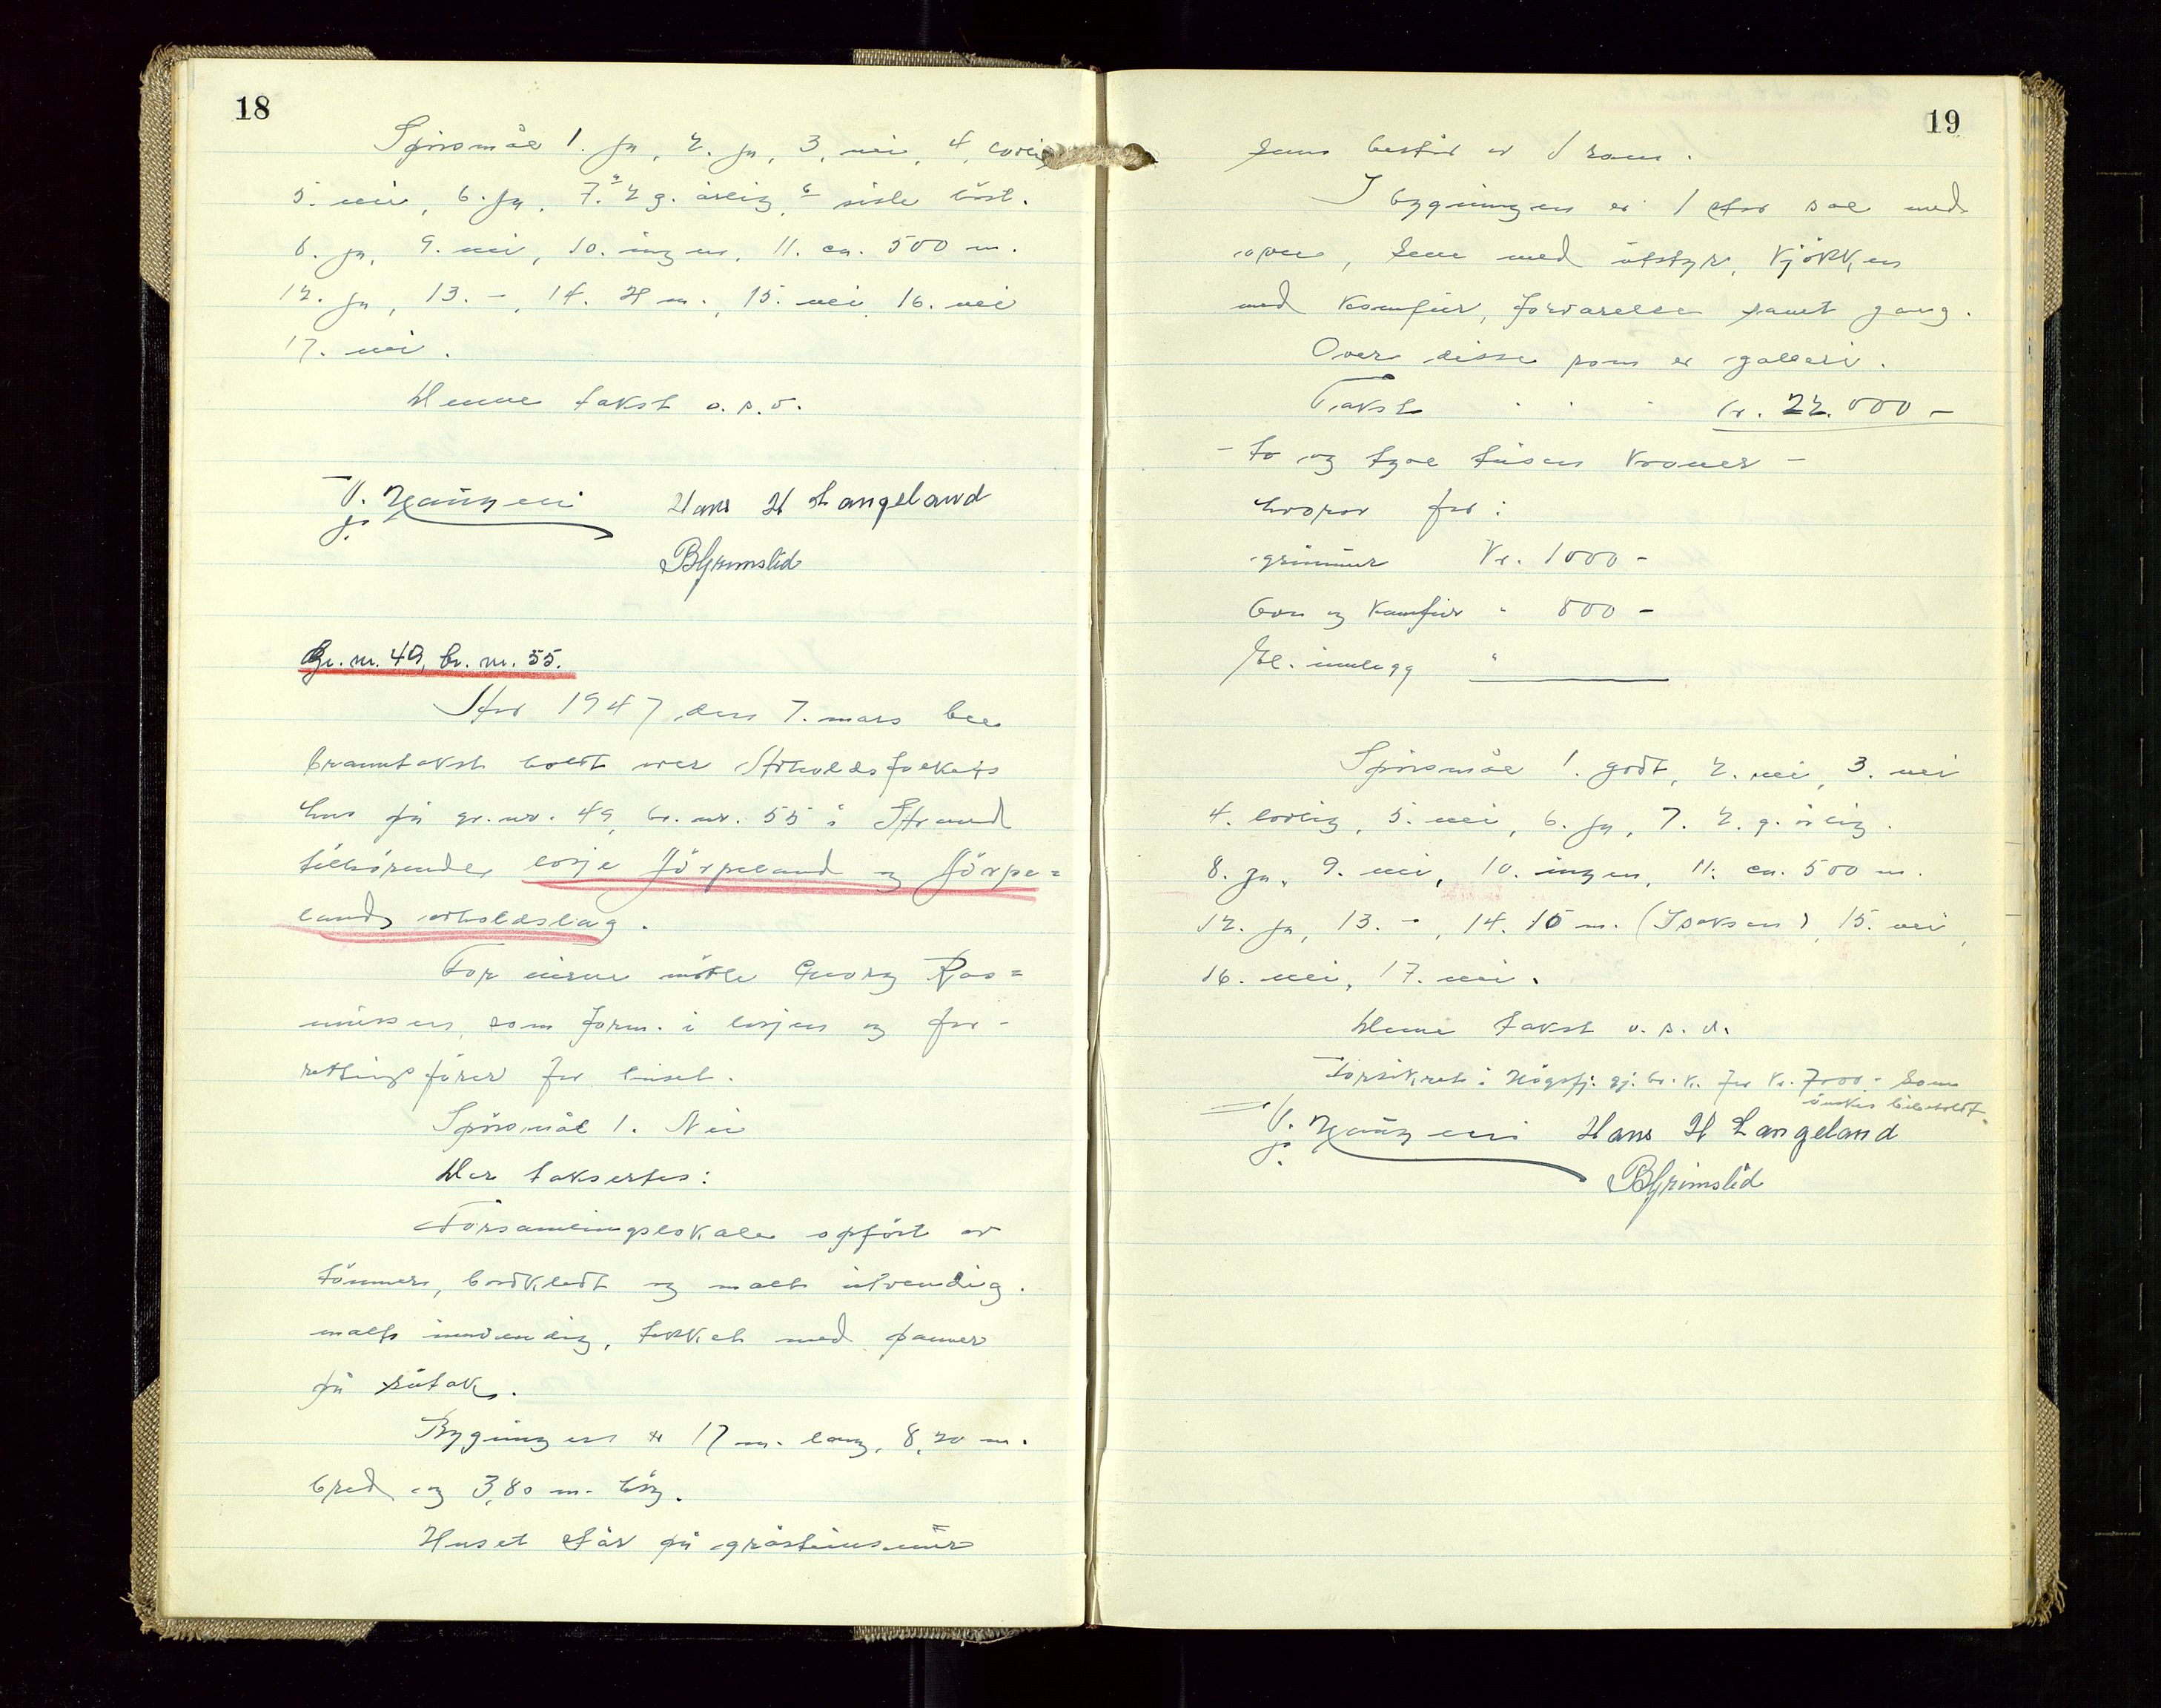 18
Spörsmål 1. ja, 2. ja, 3. nei, 4. lovlig
5. nei, 6. ja, 7. a 2 g. årlig, b siste höst.
8. ja, 9. nei, 10. ingen, 11. ca. 500 m.
12. ja, 13. -, 14. 24 m., 15. nei, 16. nei
17. nei.
Denne takst o.s.v.
Hans H Langeland
B Grimslid
Gr. nr. 49, br. nr. 55.
År 1947 den 7. mars blev
branntakst holdt over Avholdsfolkets
hus på gr. nr. 49, br. nr. 55 i Strand
tilhörende losje Jörpeland og Jörpe=
land avholdslag.
For eierne mötte Georg Ras=
mussen som form. i losjen og for-
retningsförer for huset.
Spörsmål 1. Nei
Der taksertes:
Forsamlingslokale opfört av
tömmer, bordkledt og malt utvendig.
malt innvendig, tekket med panner
på sutak.
Bygningen er 17 m. lang, 8,20 m.
bred og 3,80 m. hög.
Huset står på gråsteinsmur
19
som består av 1 rom.
I bygningen er 1 stor sal med
ovn, scene med utstyr, kjökken
med komfur, forværelse samt gang.
Over disse rom er galleri.
Takst . . . kr. 22.000 -
- to og tyve tusen kroner -
hvorav for:
grunmur kr. 1000 -
Ovn og komfur " 800 -
El. innlegg "
Spörsmål 1. godt, 2. nei, 3. nei
4. lovlig, 5. nei, 6. ja, 7. 2. g. årlig.
8. ja, 9. nei, 10. ingen, 11. ca. 500 m.
12. ja, 13. -, 14. 15 m. (Isaksen), 15. nei,
16. nei, 17. nei.
Denne takst o.s.v.
Forsikret i Högsfj. gj. br. k. for kr. 7000.- som
önskes beholdt.
Hans H Langeland
B Grimslid